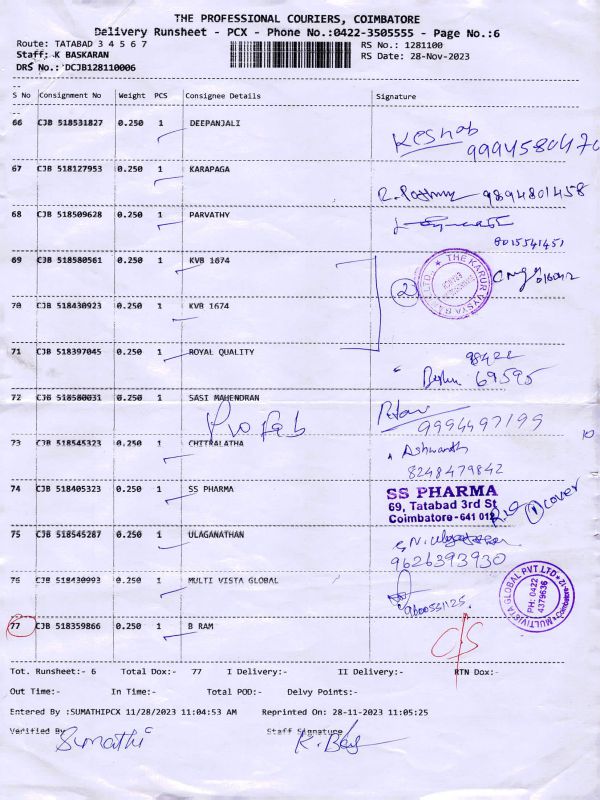 THE PROFESSIONAL COURIERS, COIMBATORE
Delivery Runsheet - PCX - Phone No.:0422-3505555 - Page No.:6
Route: TATABAD 3 4 5 6 7 RS No.: 1281100
Staff: K BASKARAN RS Date: 28-Nov-2023
DRS No.: DCJB128110006
S No Consignment No Weight PCS Consignee Details Signature
66 CJB 518531827 0.250 1 DEEPANJALI Keshab
9994580470
67 CJB 518127953 0.250 1 KARAPAGA 9894801458
68 CJB 518509628 0.250 1 PARVATHY
8015541451
69 CJB 518580561 0.250 1 KVB 1674
THE KARUR VYSYA BANK LTD
2
70 CJB 518430923 0.250 1 KVB 1674
71 CJB 518397045 0.250 1 ROYAL QUALITY 98422
69595
72 CJB 518580031 0.250 1 SASI MAHENDRAN
Pro Lab 9994497199
10
73 CJB 518545323 0.250 1 CHITRALATHA Ashwanth
8248479842
74 CJB 518405323 0.250 1 SS PHARMA SS PHARMA
69, Tatabad 3rd St
Coimbatore-641 012
1 cover
75 CJB 518545287 0.250 1 ULAGANATHAN
9626393930
76 CJB 518430993 0.250 1 MULTI VISTA GLOBAL
9600551125
MULTIVISTA GLOBAL PVT LTD Coimbatore-12
PH: 0422
4379636
77 CJB 518359866 0.250 1 B RAM
Tot. Runsheet:- 6 Total Dox:- 77 I Delivery:- II Delivery:- RTN Dox:-
Out Time:- In Time:- Total POD:- Delvy Points:-
Entered By :SUMATHIPCX 11/28/2023 11:04:53 AM Reprinted On: 28-11-2023 11:05:25
Verified By Staff Signature
Sumathi